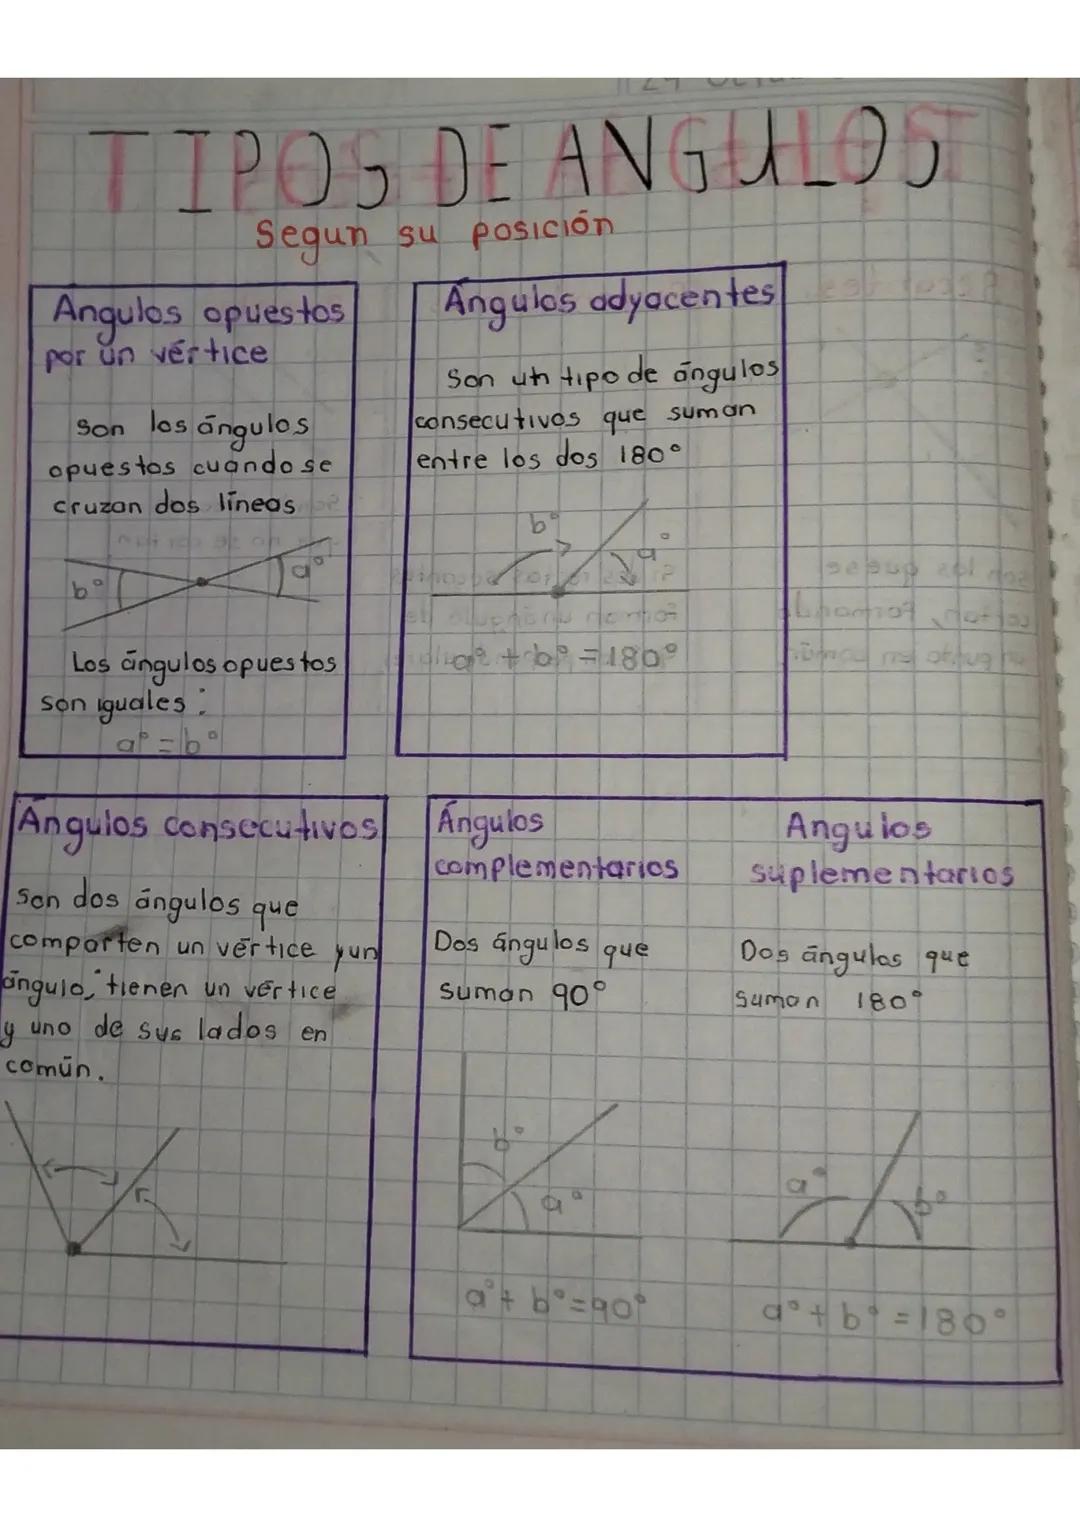 TIPOS DE ANGULOS
Segun su posición
Angulos opuestos
por un vértice
Son los ángulos
opuestos cuando se
cruzan dos líneas
b° a°
Los ángulos opuestos
son iguales:
a° = b°
Ángulos adyacentes
Son un tipo de ángulos
consecutivos que suman
entre los dos 180°
b° a°
a° + b° = 180°
Ángulos consecutivos
Son dos ángulos que
comparten un vértice y un
ángulo, tienen un vértice
y uno de sus lados en
común.
Ángulos
complementarios
Dos ángulos que
suman 90°
b°
a°
a° + b° = 90°
Angulos
suplementarios
Dos ángulos que
suman 180°
a° b°
a° + b° = 180°